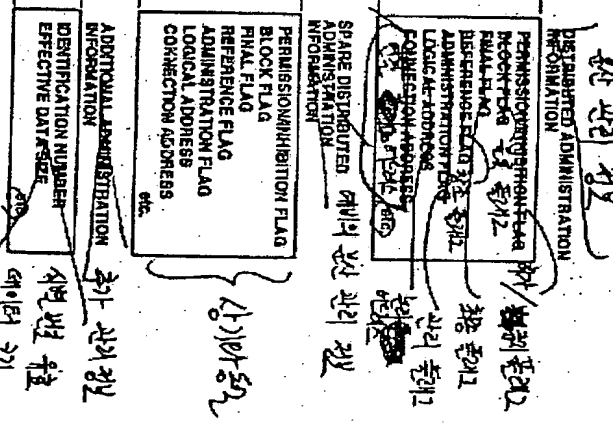 분산 관리 정보
DISTRIBUTED ADMINISTRATION
INFORMATION
PERMISSION/INHIBITION FLAG
허가/금지 플래그
BLOCK FLAG 블록 플래그
FINAL FLAG
최종 플래그
REFERENCE FLAG 참조 플래그
ADMINISTRATION FLAG
관리 플래그
LOGICAL ADDRESS
논리
CONNECTION ADDRESS
etc.
SPARE DISTRIBUTED
ADMINISTRATION
INFORMATION
예비의 분산 관리 정보
PERMISSION/INHIBITION FLAG
BLOCK FLAG
FINAL FLAG
REFERENCE FLAG
ADMINISTRATION FLAG
LOGICAL ADDRESS
CONNECTION ADDRESS
etc.
상기와 동일
ADDITIONAL ADMINISTRATION
INFORMATION
추가 관리 정보
IDENTIFICATION NUMBER
EFFECTIVE DATA SIZE
etc.
식별 번호 유효
데이터 크기